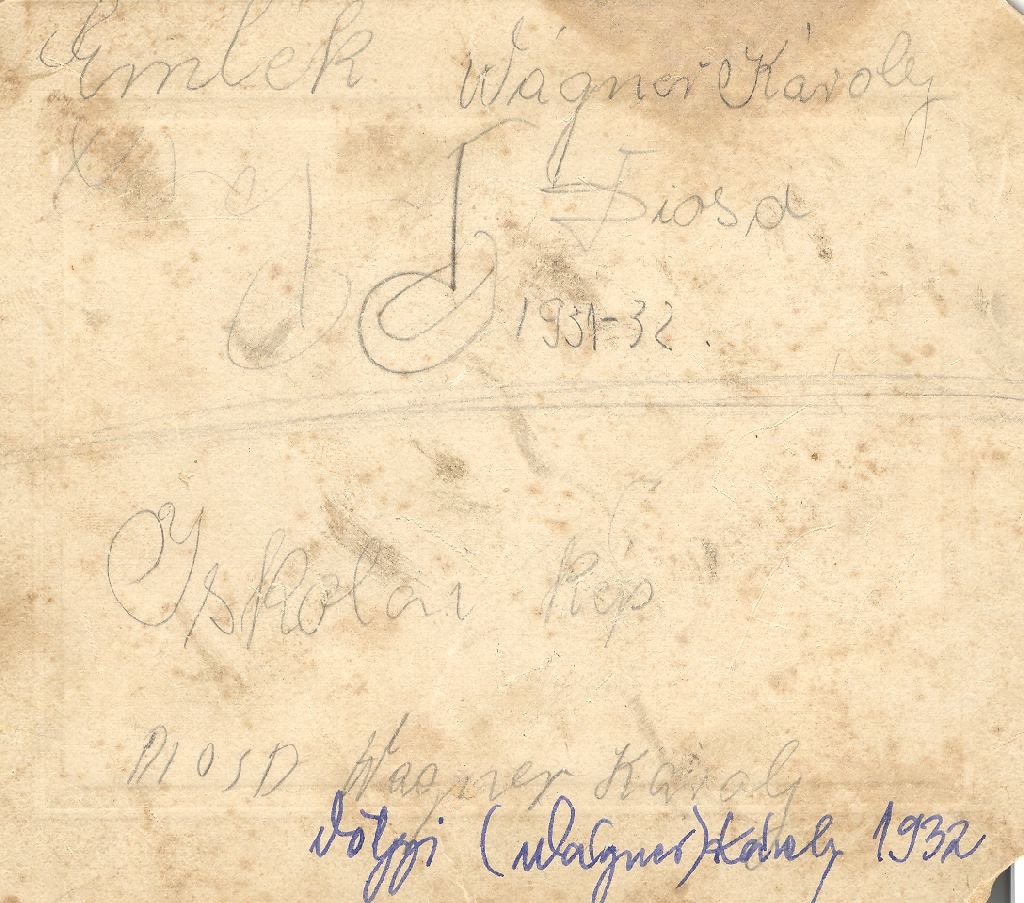 Emlék Wágner Károly
Diosd
1931-32.
Iskolai Kép
DIOSD Wágner Károly
Völgyi (Wágner) Károly 1932